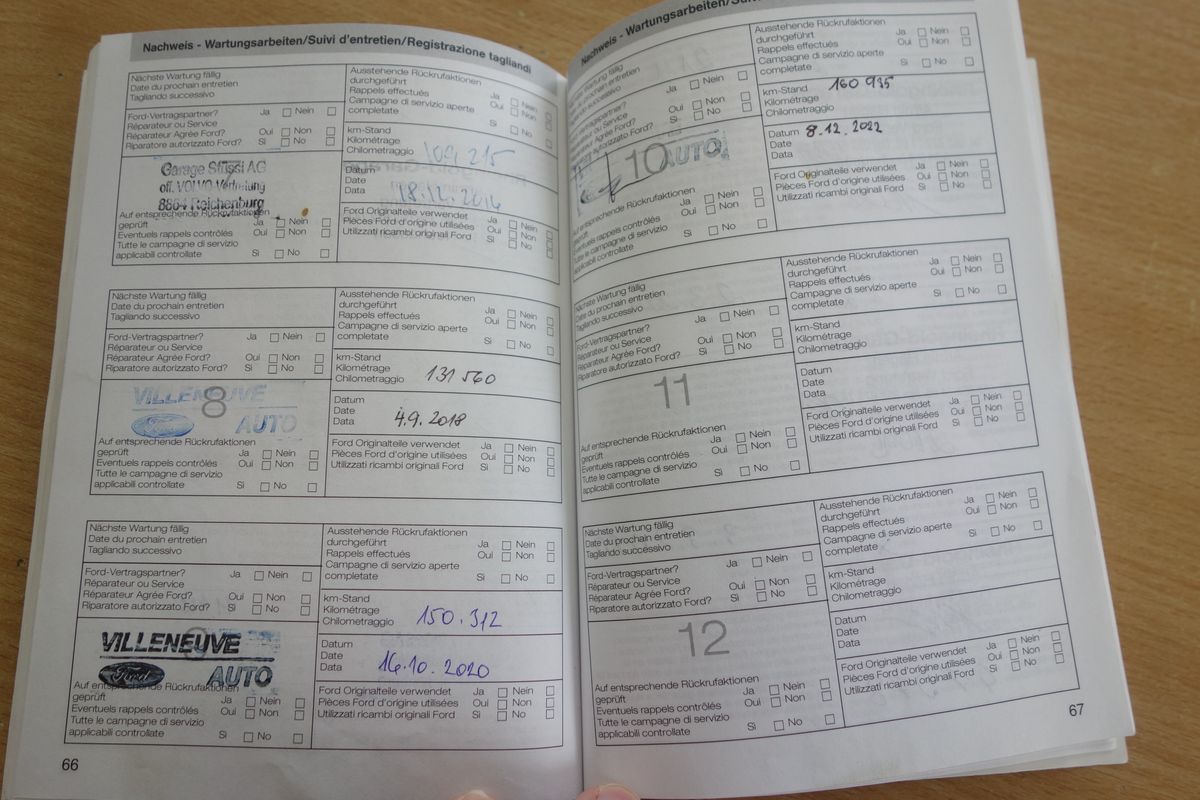 Nachweis - Wartungsarbeiten/Suivi d'entretien/Registrazione tagliandi
Nächste Wartung fällig
Date du prochain entretien
Tagliando successivo
Ausstehende Rückrufaktionen
durchgeführt Ja Nein
Rappels effectués Oui Non
Campagne di servizio aperte
completate Si No
Ford-Vertragspartner? Ja Nein
Réparateur ou Service
Réparateur Agrée Ford? Oui Non
Riparatore autorizzato Ford? Si No
km-Stand
Kilométrage
Chilometraggio 109 215
Garage Stüssi AG
off. VOLVO Vertretung
8864 Reichenburg
Datum
Date
Data 18.12.2014
Auf entsprechende Rückrufaktionen
geprüft Ja Nein
Eventuels rappels contrôlés Oui Non
Tutte le campagne di servizio
applicabili controllate Si No
Ford Originalteile verwendet Ja Nein
Pièces Ford d'origine utilisées Oui Non
Utilizzati ricambi originali Ford Si No
Nächste Wartung fällig
Date du prochain entretien
Tagliando successivo
Ausstehende Rückrufaktionen
durchgeführt Ja Nein
Rappels effectués Oui Non
Campagne di servizio aperte
completate Si No
Ford-Vertragspartner? Ja Nein
Réparateur ou Service
Réparateur Agrée Ford? Oui Non
Riparatore autorizzato Ford? Si No
km-Stand
Kilométrage
Chilometraggio 131 560
VILLENEUVE
8
Ford AUTO
Datum
Date 4.9.2018
Data
Auf entsprechende Rückrufaktionen
geprüft Ja Nein
Eventuels rappels contrôlés Oui Non
Tutte le campagne di servizio
applicabili controllate Si No
Ford Originalteile verwendet Ja Nein
Pièces Ford d'origine utilisées Oui Non
Utilizzati ricambi originali Ford Si No
Nächste Wartung fällig
Date du prochain entretien
Tagliando successivo
Ausstehende Rückrufaktionen
durchgeführt Ja Nein
Rappels effectués Oui Non
Campagne di servizio aperte
completate Si No
Ford-Vertragspartner? Ja Nein
Réparateur ou Service
Réparateur Agrée Ford? Oui Non
Riparatore autorizzato Ford? Si No
km-Stand
Kilométrage
Chilometraggio 150.312
VILLENEUVE
9
Ford AUTO
Datum
Date
Data 16.10.2020
Auf entsprechende Rückrufaktionen
geprüft Ja Nein
Eventuels rappels contrôlés Oui Non
Tutte le campagne di servizio
applicabili controllate Si No
Ford Originalteile verwendet Ja Nein
Pièces Ford d'origine utilisées Oui Non
Utilizzati ricambi originali Ford Si No
66
Nachweis - Wartungsarbeiten/Suivi
Nächste Wartung fällig
Date du prochain entretien
Tagliando successivo
Ausstehende Rückrufaktionen
durchgeführt Ja Nein
Rappels effectués Oui Non
Campagne di servizio aperte
completate Si No
Ford-Vertragspartner? Ja Nein
Réparateur ou Service
Réparateur Agrée Ford? Oui Non
Riparatore autorizzato Ford? Si No
km-Stand 160 935
Kilométrage
Chilometraggio
10
AUTO
Datum 8.12.2022
Date
Data
Auf entsprechende Rückrufaktionen
geprüft Ja Nein
Eventuels rappels contrôlés Oui Non
Tutte le campagne di servizio
applicabili controllate Si No
Ford Originalteile verwendet Ja Nein
Pièces Ford d'origine utilisées Oui Non
Utilizzati ricambi originali Ford Si No
Nächste Wartung fällig
Date du prochain entretien
Tagliando successivo
Ausstehende Rückrufaktionen
durchgeführt Ja Nein
Rappels effectués Oui Non
Campagne di servizio aperte
completate Si No
Ford-Vertragspartner? Ja Nein
Réparateur ou Service
Réparateur Agrée Ford? Oui Non
Riparatore autorizzato Ford? Si No
km-Stand
Kilométrage
Chilometraggio
11
Datum
Date
Data
Auf entsprechende Rückrufaktionen
geprüft Ja Nein
Eventuels rappels contrôlés Oui Non
Tutte le campagne di servizio
applicabili controllate Si No
Ford Originalteile verwendet Ja Nein
Pièces Ford d'origine utilisées Oui Non
Utilizzati ricambi originali Ford Si No
Nächste Wartung fällig
Date du prochain entretien
Tagliando successivo
Ausstehende Rückrufaktionen
durchgeführt Ja Nein
Rappels effectués Oui Non
Campagne di servizio aperte
completate Si No
Ford-Vertragspartner? Ja Nein
Réparateur ou Service
Réparateur Agrée Ford? Oui Non
Riparatore autorizzato Ford? Si No
km-Stand
Kilométrage
Chilometraggio
12
Datum
Date
Data
Auf entsprechende Rückrufaktionen
geprüft Ja Nein
Eventuels rappels contrôlés Oui Non
Tutte le campagne di servizio
applicabili controllate Si No
Ford Originalteile verwendet Ja Nein
Pièces Ford d'origine utilisées Oui Non
Utilizzati ricambi originali Ford Si No
67